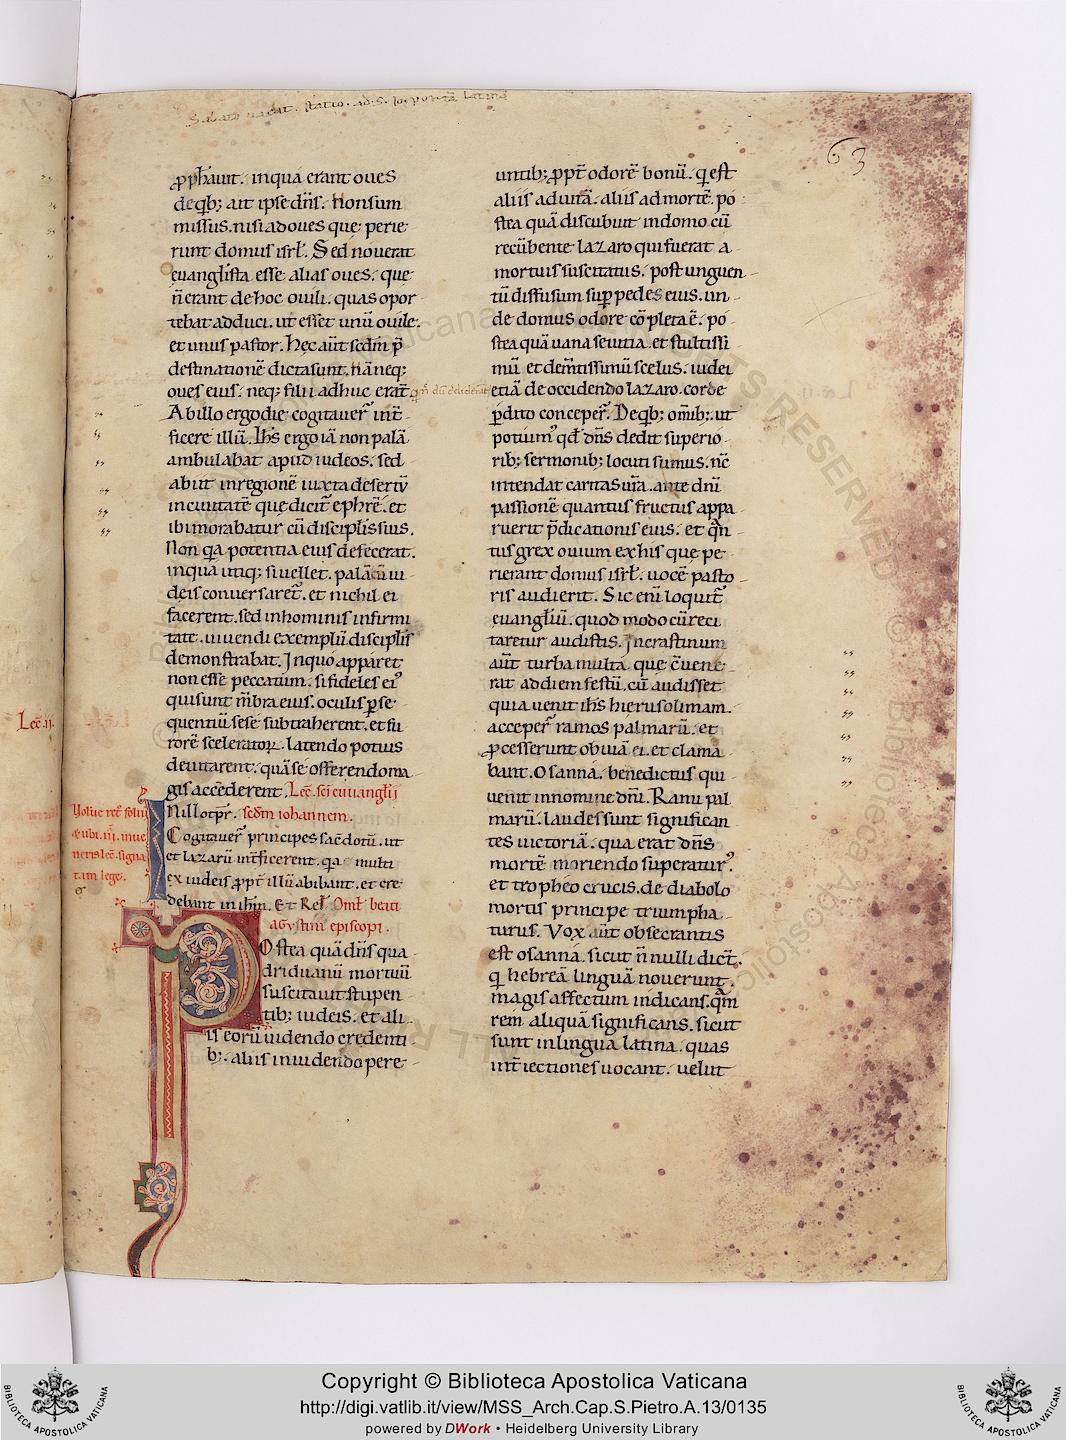 Sabato uacat. statio. ad. S. Io. portā latinā
63
p̱phauit. in qua erant oues
de qb; ait ipse dn̄s. Non sum
missus. nisi ad oues que perie
runt domus isrl'. Sed nouerat
euanglista esse alias oues. que
n̄ erant de hoc ouili. quas opor
tebat adduci. ut esset unū ouile.
et unus pastor. Hęc aūt scdm̄ p̄
destinationē dicta sunt. nā neq;
oues eius. neq; filii adhuc erat̄.
Ab illo ergo die cogitauer̄ int̄
ficere illū. Ihs̄ ergo iā non palā
ambulabat apud iudeos. sed
abiit in regionē iuxta desertū
in ciuitatē que dicit̄ ephrē. et
ibi morabatur cū discipl'is suis.
Non qa potentia eius defecerat.
in qua utiq; si uellet. palā cū iu
deis conuersaret̄. et nichil ei
facerent. sed in hominis infirmi
tate. uiuendi exemplū discipl'is
demonstrabat. In quo apparet
non esse peccatum. si fideles ei'
qui sunt m̄bra eius. oculis p̱se
quentiū sese subtraherent. et fu
rorē sceleratoꝝ. latendo potius
deuitarent. quā se offerendo ma
gis accederent. Lec̄. sc̄i euuanglii
In illo tpr̄. scdm̄ iohannem.
Cogitauer̄ principes sac̄dotū. ut
et lazarū int̄ficerent. qa multi
ex iudeis p̱pt̄ illū abibant. et cre
debant in ihm̄. Et Rel' Oml' beati
agustini episcopi.
Postea quā dn̄s qua
driduanū mortuū
suscitauit. stupen
tib; iudeis. et ali
is eorū uidendo credenti
b;. aliis inuidendo pere
Lec̄. II.
untib; p̱pt̄ odorē bonū. qi est
aliis ad uitā. aliis ad mortē. po
stea quā discubuit in domo cū
recūbente lazaro qui fuerat a
mortuis suscitatus. post unguen
tū diffusum sup̱ pedes eius. un
de domus odore cōpleta ē. po
stea quā uana seuitia. et stultissi
mū et dem̄tissimū scelus. iudei
etiā de occidendo lazaro. corde
p̱dito conceper̄. De qb; om̄ib; ut
potuim' qd̄ dn̄s dedit superio
rib; sermonib; locuti sumus. nc̄
intendat caritas ur̄a. ante dn̄i
passionē quantus fructus appa
ruerit p̄dicationis eius. et qn̄
tus grex ouium ex his que pe
rierant domus isrl'. uocē pasto
ris audierit. Sic eni loquit̄
euangliū. quod modo cū reci
taretur audistis. In crastinum
aūt turba multa. que c̄uene
rat ad diem festū. cū audisset
quia uenit ihs̄ hierusolimam.
acceper̄ ramos palmarū. et
p̱cesserunt obuiā ei. et clama
bant. Osanna. benedictus qui
uenit in nomine dn̄i. Rami pal
marū. laudes sunt significan
tes uictoriā. qua erat dn̄s
mortē moriendo superatur'.
et tropheo crucis. de diabolo
mortis principe triumpha
turus. Vox aūt obsecrantis
est osanna. sicut n̄ nulli dict̄.
qi hebreā linguā nouerunt.
magis affectum indicans. qm̄
rem aliquā significans. sicut
sunt in lingua latina. quas
int̄iectiones uocant. uelut
Copyright © Biblioteca Apostolica Vaticana
http://digi.vatlib.it/view/MSS_Arch.Cap.S.Pietro.A.13/0135
powered by DWork • Heidelberg University Library
BIBLIOTECA APOSTOLICA VATICANA
BIBLIOTECA APOSTOLICA VATICANA